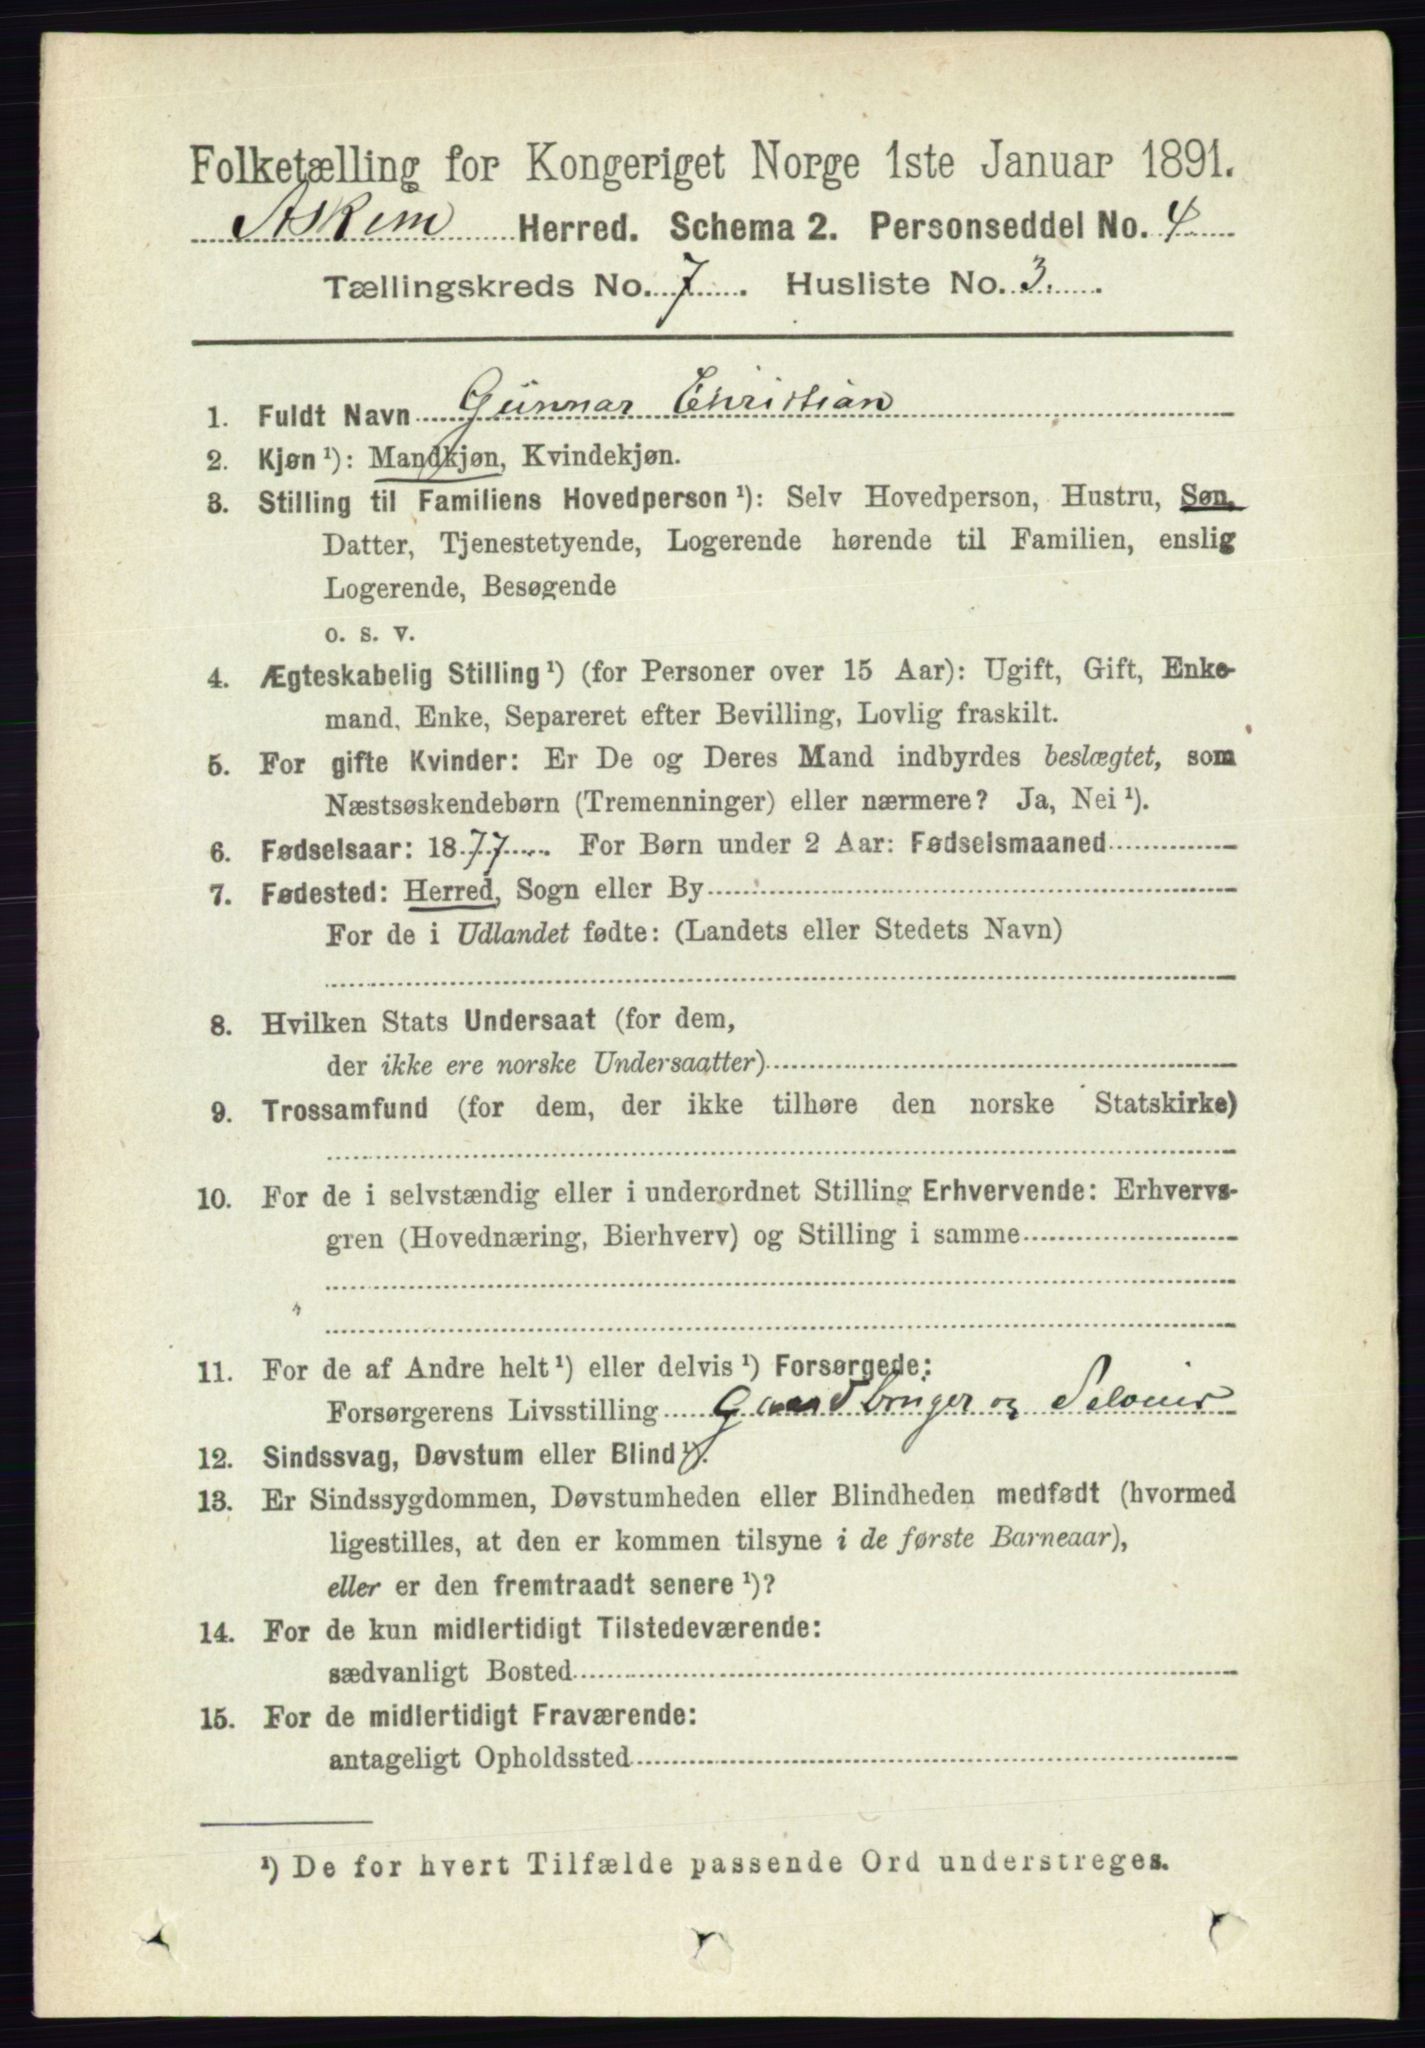 Folketælling for Kongeriget Norge 1ste Januar 1891.
Askim Herred. Schema 2. Personseddel No. 4
Tællingskreds No. 7. Husliste No. 3.
1. Fuldt Navn Gunnar Christian
2. Kjøn ¹): Mandkjøn, Kvindekjøn.
3. Stilling til Familiens Hovedperson ¹): Selv Hovedperson, Hustru, Søn,
Datter, Tjenestetyende, Logerende hørende til Familien, enslig
Logerende, Besøgende
o. s. v.
4. Ægteskabelig Stilling ¹) (for Personer over 15 Aar): Ugift, Gift, Enke-
mand, Enke, Separeret efter Bevilling, Lovlig fraskilt.
5. For gifte Kvinder: Er De og Deres Mand indbyrdes beslægtet, som
Næstsøskendebørn (Tremenninger) eller nærmere? Ja, Nei ¹).
6. Fødselsaar: 1877. For Børn under 2 Aar: Fødselsmaaned
7. Fødested: Herred, Sogn eller By
For de i Udlandet fødte: (Landets eller Stedets Navn)
8. Hvilken Stats Undersaat (for dem,
der ikke ere norske Undersaatter)
9. Trossamfund (for dem, der ikke tilhøre den norske Statskirke)
10. For de i selvstændig eller i underordnet Stilling Erhvervende: Erhvervs-
gren (Hovednæring, Bierhverv) og Stilling i samme
11. For de af Andre helt ¹) eller delvis ¹) Forsørgede:
Forsørgerens Livsstilling Gaardbruger og Seloier
12. Sindssvag, Døvstum eller Blind ¹).
13. Er Sindssygdommen, Døvstumheden eller Blindheden medfødt (hvormed
ligestilles, at den er kommen tilsyne i de første Barneaar),
eller er den fremtraadt senere ¹)?
14. For de kun midlertidigt Tilstedeværende:
sædvanligt Bosted
15. For de midlertidigt Fraværende:
antageligt Opholdssted
¹) De for hvert Tilfælde passende Ord understreges.